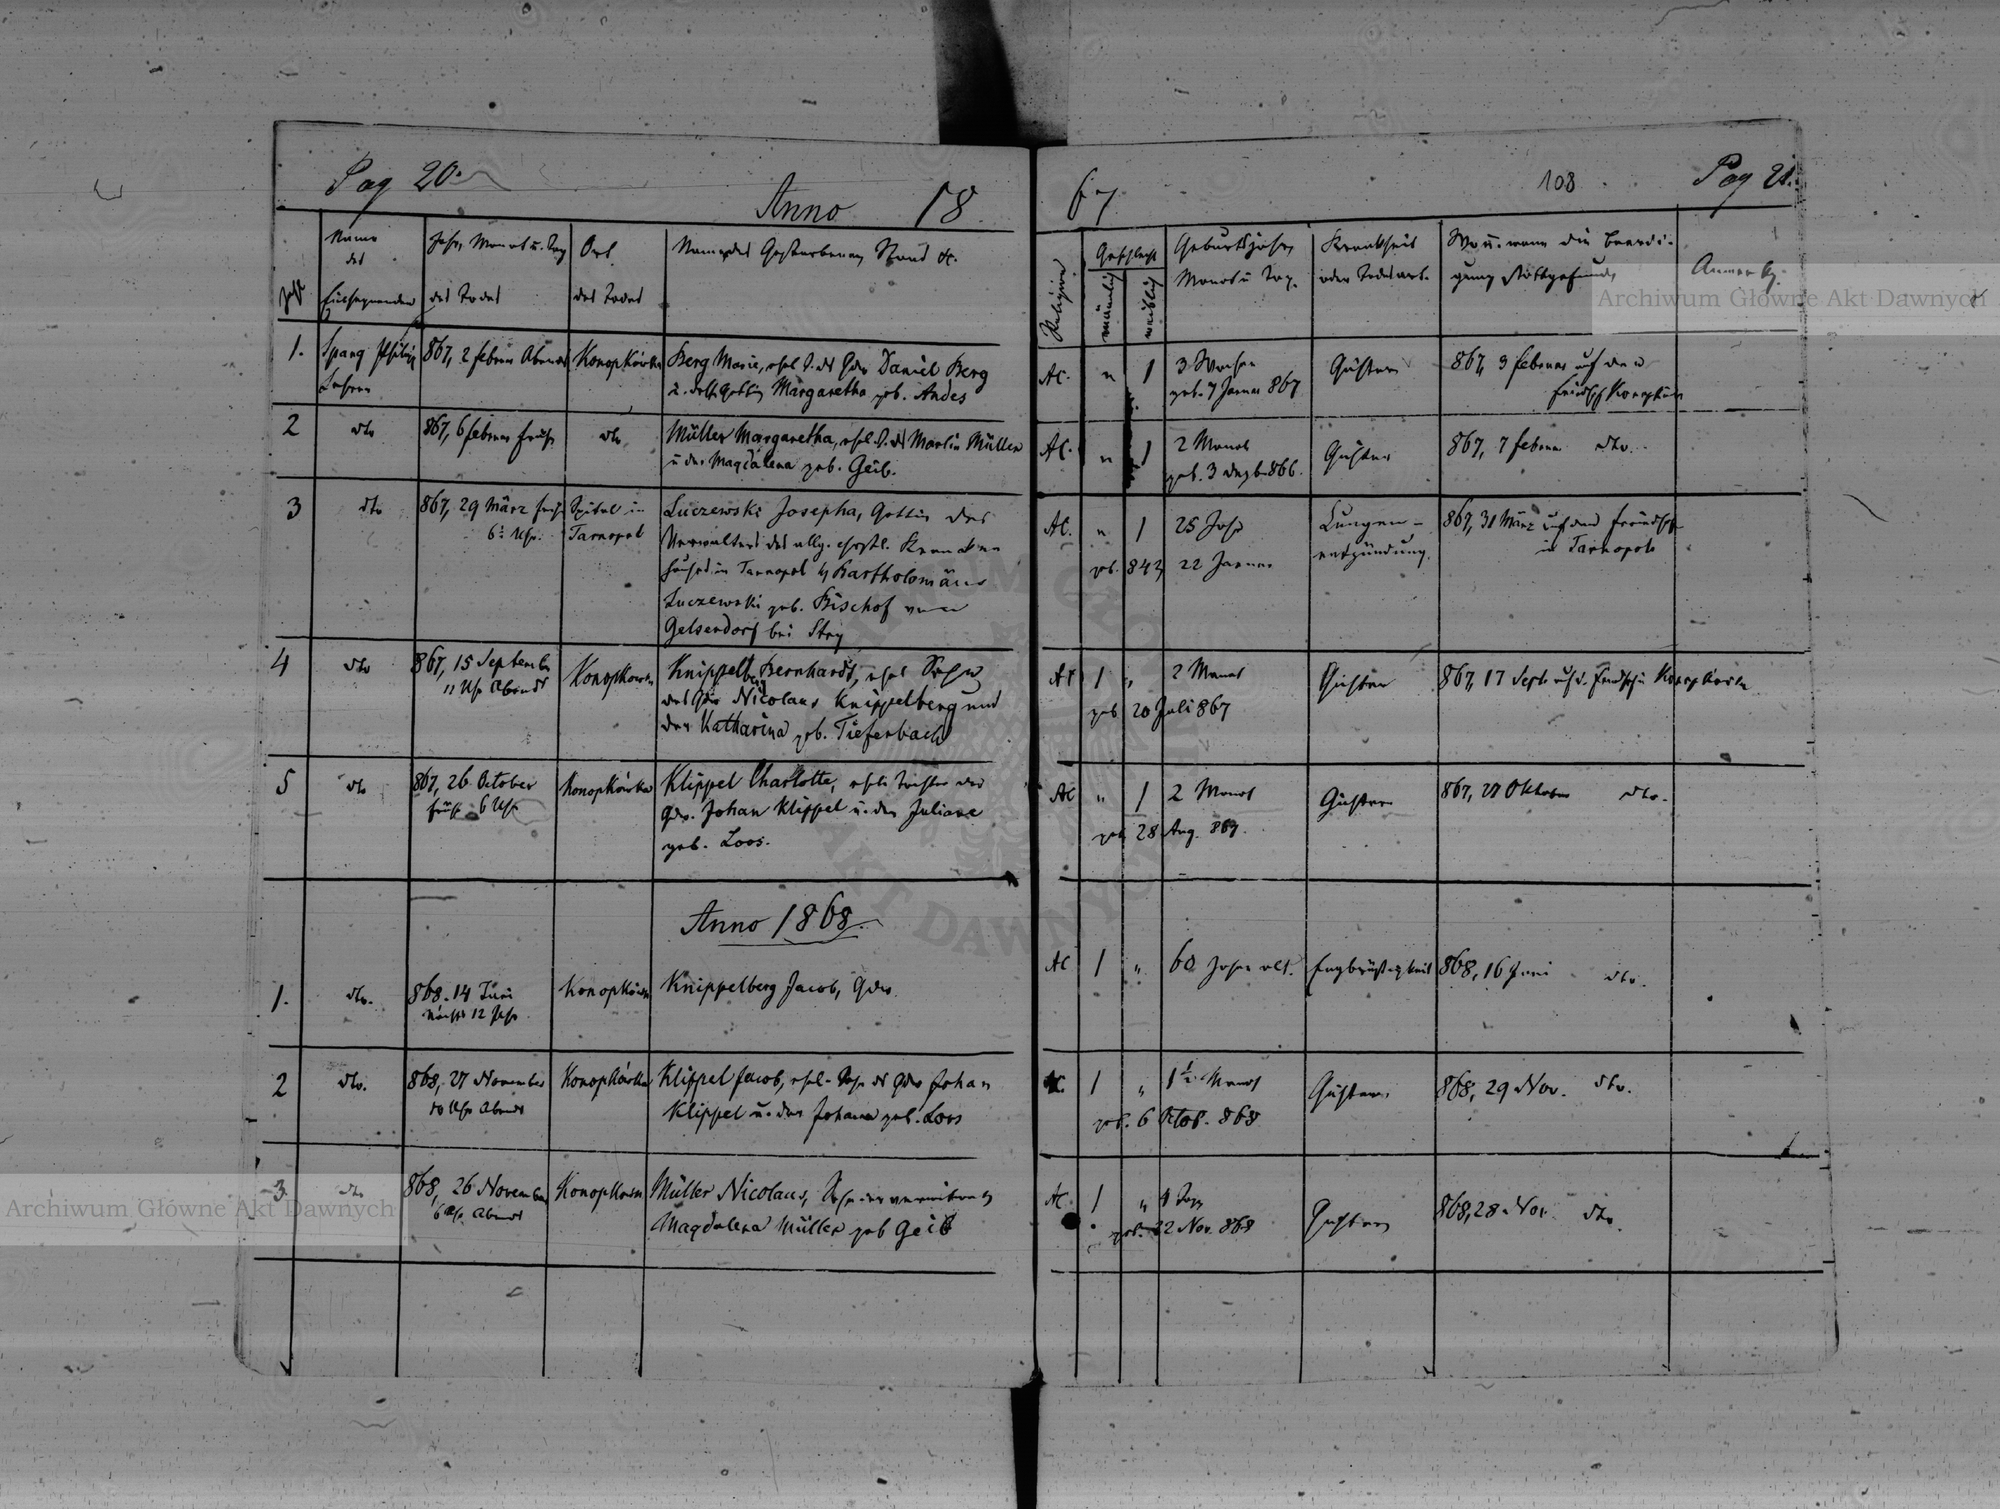 Pag 20.
Anno 18
67
108
Pag 21.
Zahl
Name
des
Einsegnenden
Jahr, Monat u. Tag
des Todes
Ort
des Todes
Name des Gestorbenen, Stand &c.
Religion
Geschlecht
männlich
weiblich
Geburtsjahr,
Monat u Tag.
Krankheit
oder Todesart.
Wo u. wann die Beerdi-
gung stattgefunden
Anmerkg.
1.
Spang Philipp
Lehrer
867, 2 Februar Abends
Konopkówka
Berg Marie, ehel. T. des Gdw Daniel Berg
Gattin Margaretha geb. Andes
AC.
"
1
3 Wochen
geb. 7 Januar 867
Gichter
867, 3 Februar auf dem
Friedhf Konopkówka
2
dto
867, 6 Februar früh
dto
Müller Margaretha, ehel. T. des Martin Müller
u der Magdalena geb. Geib.
AC.
"
1
2 Monat
geb. 3 Dezb. 866.
Gichter
867, 7 Februar dto.
3
dto
867, 29 März früh
6 Uhr.
Spital in
Tarnopol
Luczewski Josepha, Gattin des
Verwalters des allg. christl. Kranken
hauses in Tarnopol H Bartholomäus
Luczewski geb. Bischof von
Gelsendorf bei Stry
AC.
"
1
25 Jahr
geb. 842, 22 Januar
Lungen-
entzündung.
867, 31 März auf dem Friedhf
in Tarnopol
4
dto
867, 15 September
11 Uhr Abends
Konopkowka
Knippelberg Bernhardt, ehel Sohn
des Gdw Nicolaus Knippelberg und
der Katharina geb. Tiefenbach
AC
1
"
2 Monat
geb 20 Juli 867
Gichter
867, 17 Sept. auf d. Friedhf in Konopkówka
5
dto
867, 26 October
früh 6 Uhr
Konopkówka
Klippel Charlotte, ehel. Tochter des
Gdw. Johan Klippel u. der Juliane
geb. Loos.
AC
"
1
2 Monat
geb 28 Aug. 867.
Gichter
867, 27 Oktober dto.
Anno 1868.
1.
dto.
868. 14 Juni
Nachts 12 Uhr
Konopkówka
Knippelberg Jacob, Gdw.
AC
1
"
60 Jahr alt.
Engbrüstigkeit
868, 16 Juni dto.
2
dto.
868, 27 November
10 Uhr Abends
Konopkówka
Klippel Jacob, ehel. Sohn des Gdw Johan
Klippel u. der Johana geb. Loos
AC.
1
"
1 1/2 Monat
geb. 6 Octob. 868
Gichter.
868, 29 Nov. dto.
3
dto
868, 26 November
6 Uhr Abends
Konopkowka
Müller Nicolaus, Sohn der verwitweten
Magdalena Müller geb Geib
AC.
1
"
4 Tage
geb. 22 Nov. 868
Gichter
868, 28 Nov. dto.
Archiwum Główne Akt Dawnych
Archiwum Główne Akt Dawnych